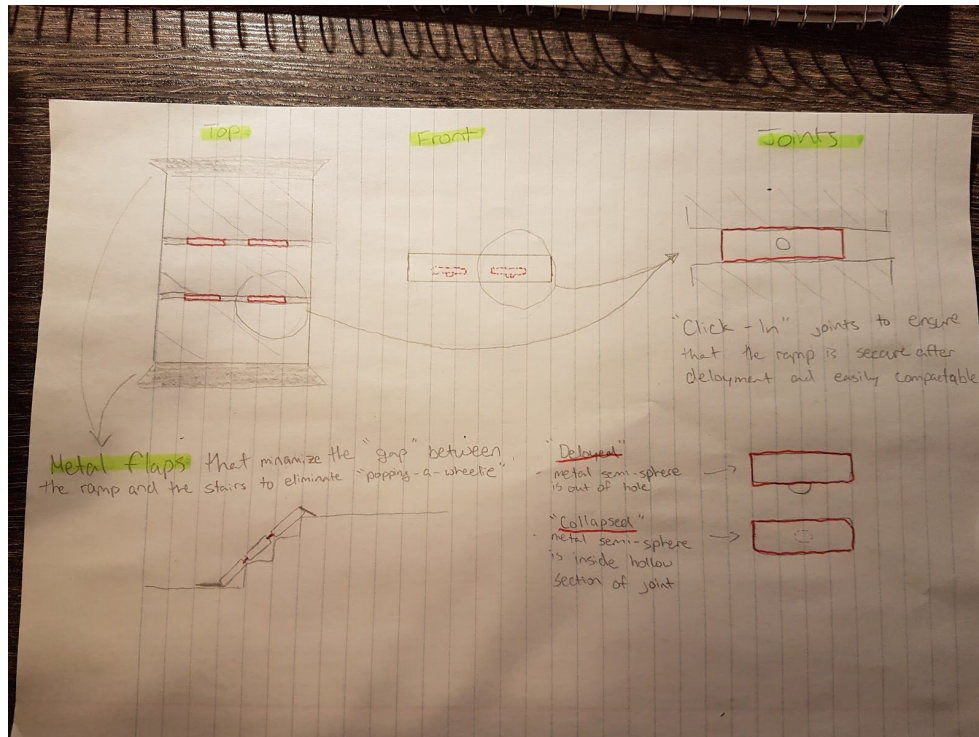 Top
Front
Joints
"Click-In" joints to ensure
that the ramp is secure after
deloyment and easily compactable
Metal flaps that minamize the "gap" between
the ramp and the stairs to eliminate "popping-a-wheelie"
"Deloyed"
- metal semi-sphere
is out of hole
"Collapsed"
- metal semi-sphere
is inside hollow
section of joint